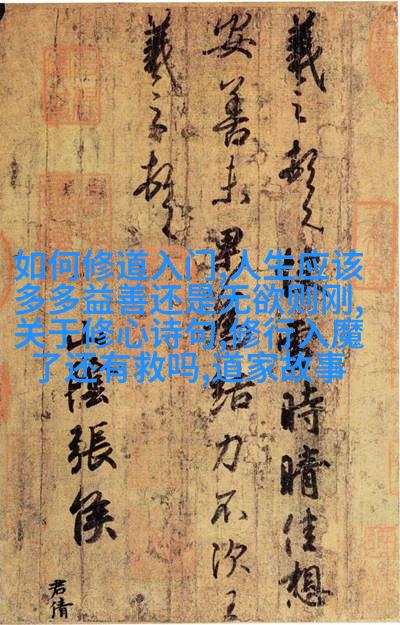 羲之頓首快雪時晴佳想
安善未果為結力不次王
羲之頓首
山陰張侯
君倩
如何修道入门,人生应该
多多益善还是无欲则刚,
关于修心诗句,修行入魔
了还有救吗,道家故事